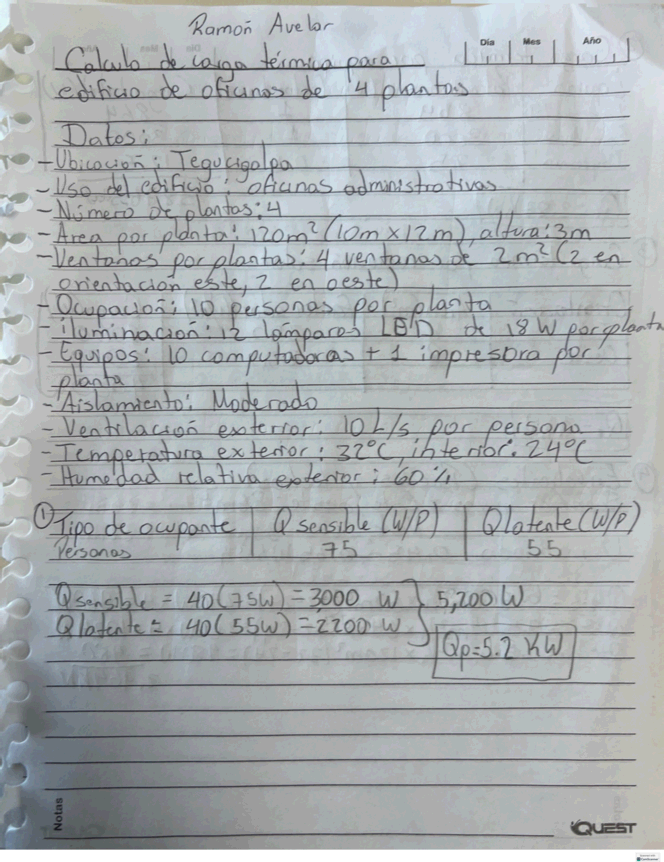 Ramón Avelar
Día Mes Año
Calculo de carga térmica para
edificio de oficinas de 4 plantas
Datos:
- Ubicación: Tegucigalpa
- Uso del edificio: oficinas administrativas
- Número de plantas: 4
- Area por planta: 120m² (10m x 12m), altura: 3m
- Ventanas por plantas: 4 ventanas de 2m² (2 en
orientación este, 2 en oeste)
- Ocupación: 10 personas por planta
- iluminación: 12 lámparas LED de 18 W por planta
- Equipos: 10 computadoras + 1 impresora por
planta
- Aislamiento: Moderado
- Ventilación exterior: 10 L/s por persona
- Temperatura exterior: 32°C, interior: 24°C
- Humedad relativa exterior: 60%
① Tipo de ocupante | Q sensible (W/P) | Q latente (W/P)
Personas 75 55
Qsensible = 40(75W) = 3000 W } 5,200 W
Qlatente = 40(55W) = 2200 W
Qp = 5.2 KW
Notas
QUEST